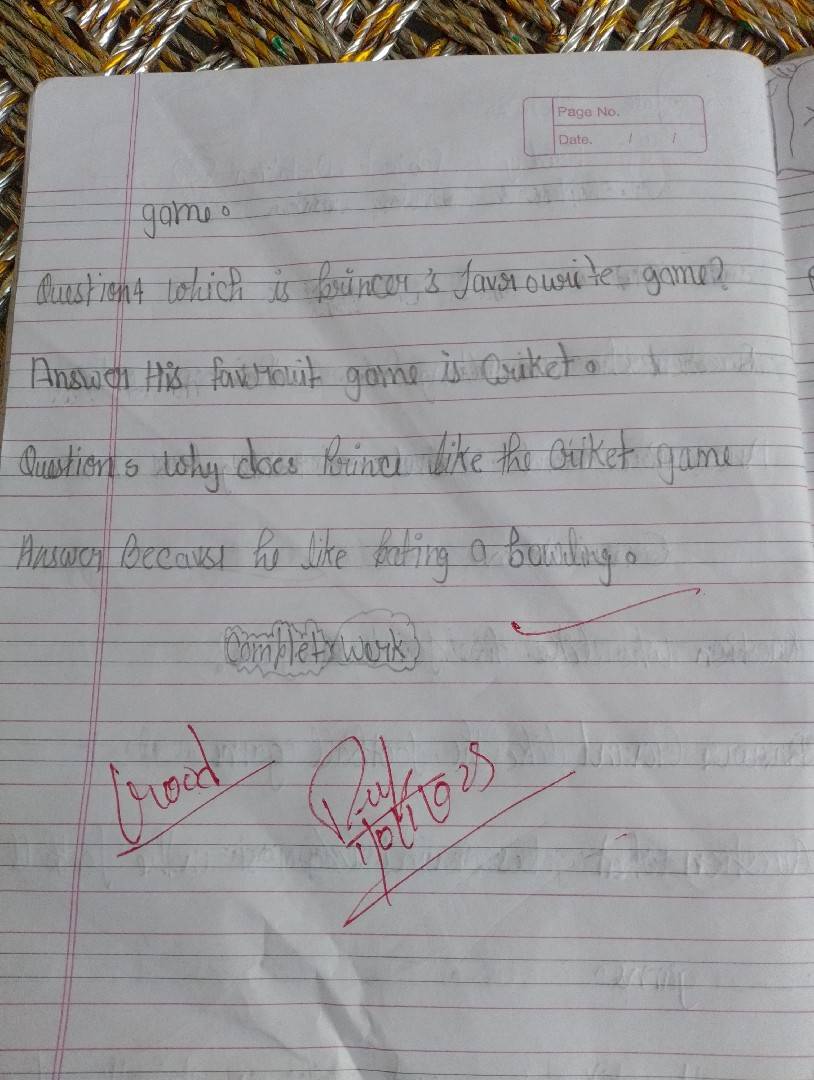 Page No.
Date. / /
game.
Question4 which is Princer's favrowite game?
Answer His favrouit game is Criket.
Question5 why does Prince like the Criket game
Answer Becaus he like bating a bowling.
Complet work
Good